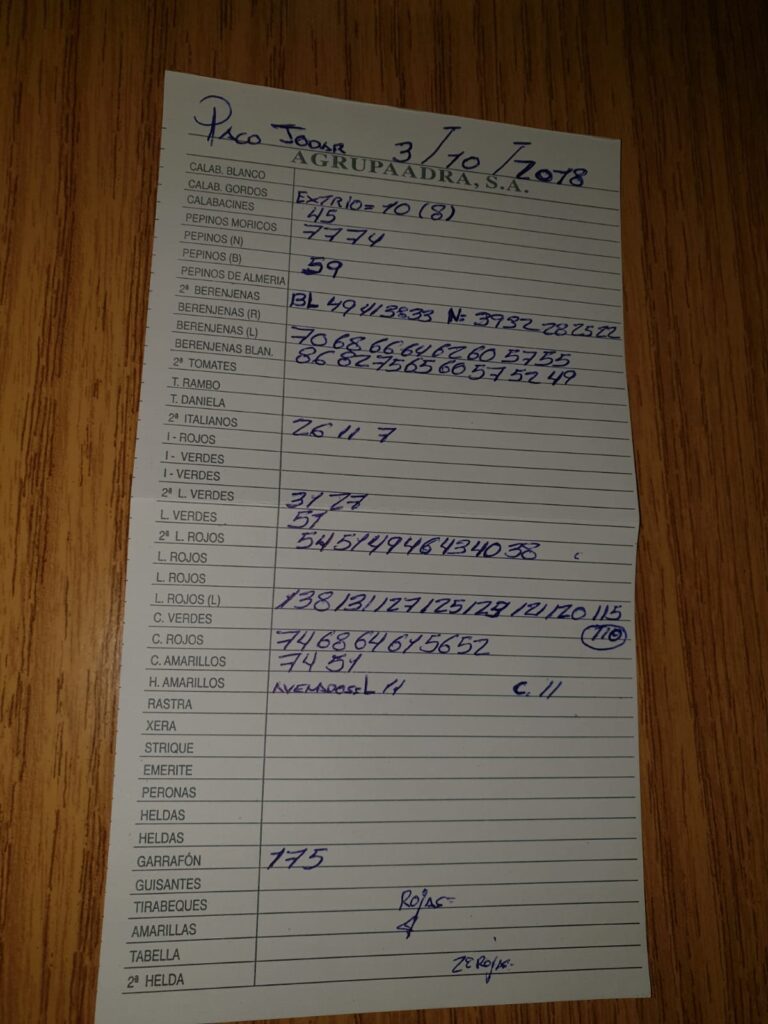 Paco Jodar 3/10/2018
AGRUPAADRA, S.A.
CALAB. BLANCO
CALAB. GORDOS
CALABACINES EXTRIO = 10 (8)
PEPINOS MORICOS 45
PEPINOS (N) 77 74
PEPINOS (B)
PEPINOS DE ALMERIA 59
2ª BERENJENAS
BERENJENAS (R) BL 49 41 38 33 N= 39 32 28 25 22
BERENJENAS (L) 70 68 66 64 62 60 57 55
BERENJENAS BLAN. 86 82 75 65 60 57 52 49
2ª TOMATES
T. RAMBO
T. DANIELA
2ª ITALIANOS
I - ROJOS 26 11 7
I - VERDES
I - VERDES
2ª L. VERDES 31 27
L. VERDES 51
2ª L. ROJOS 54 51 49 46 43 40 38
L. ROJOS
L. ROJOS
L. ROJOS (L) 138 131 127 125 123 121 120 115
C. VERDES 110
C. ROJOS 74 68 64 61 56 52
C. AMARILLOS 74 51
H. AMARILLOS L 14 C. 11
RASTRA
XERA
STRIQUE
EMERITE
PERONAS
HELDAS
HELDAS
GARRAFÓN 175
GUISANTES
TIRABEQUES Rojas-
AMARILLAS 4
TABELLA
2ª HELDA 2ª Rojas-